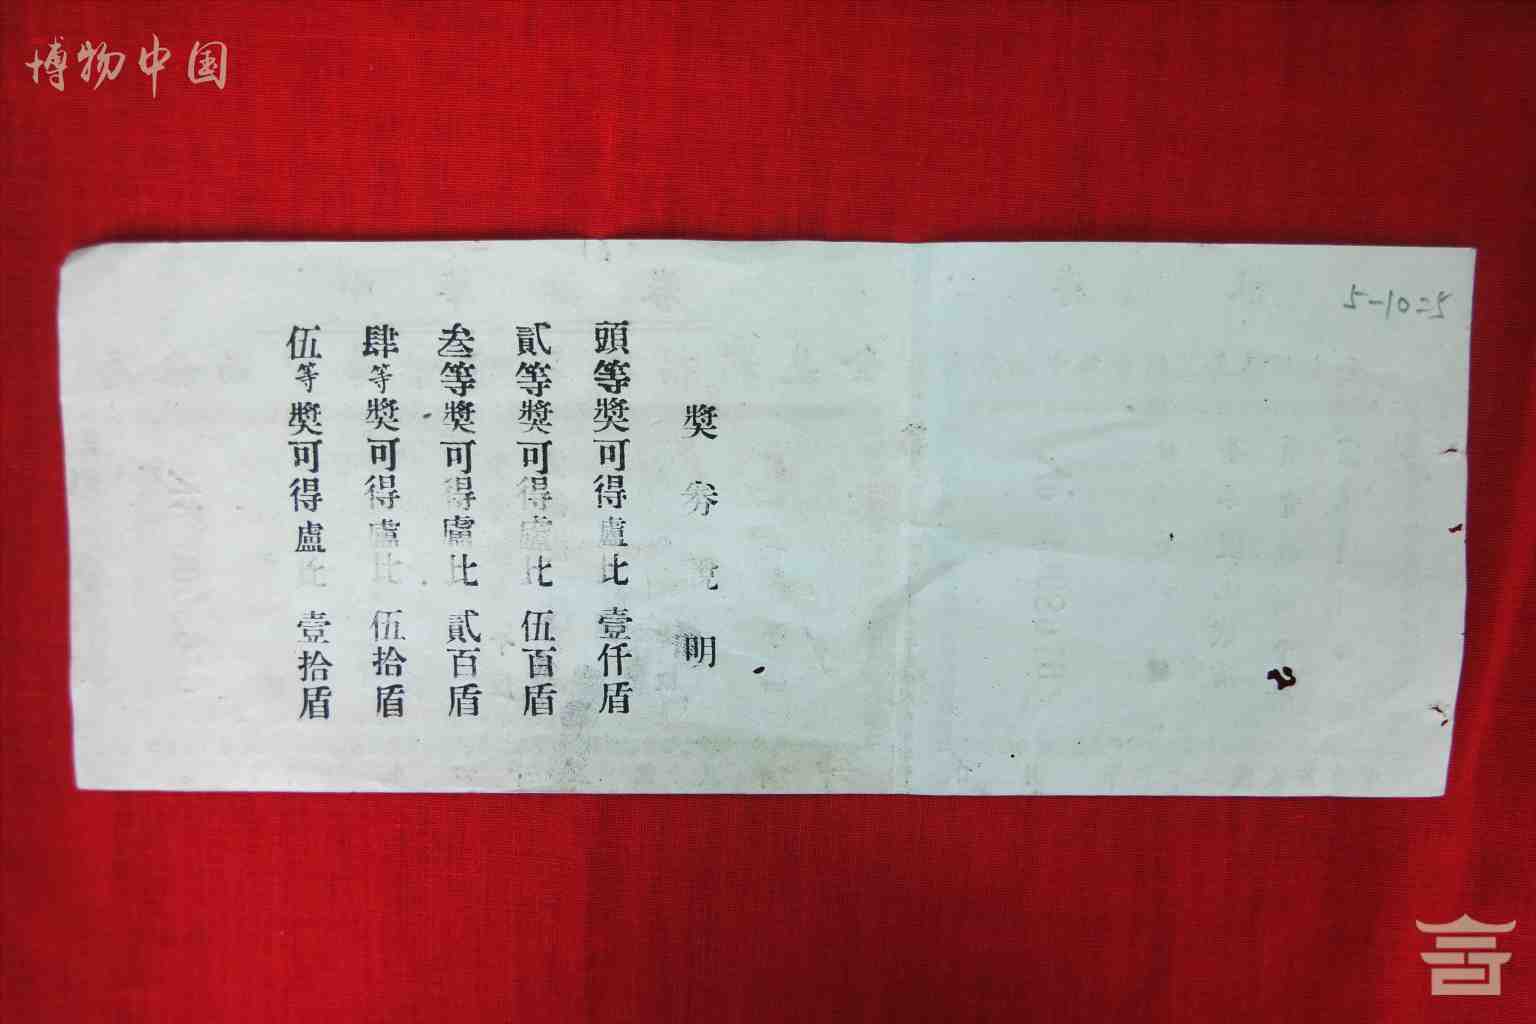 博物中国
5-10=5
獎券說明
頭等獎可得盧比壹仟盾
貳等獎可得盧比伍百盾
叁等獎可得盧比貳百盾
肆等獎可得盧比伍拾盾
伍等獎可得盧比壹拾盾